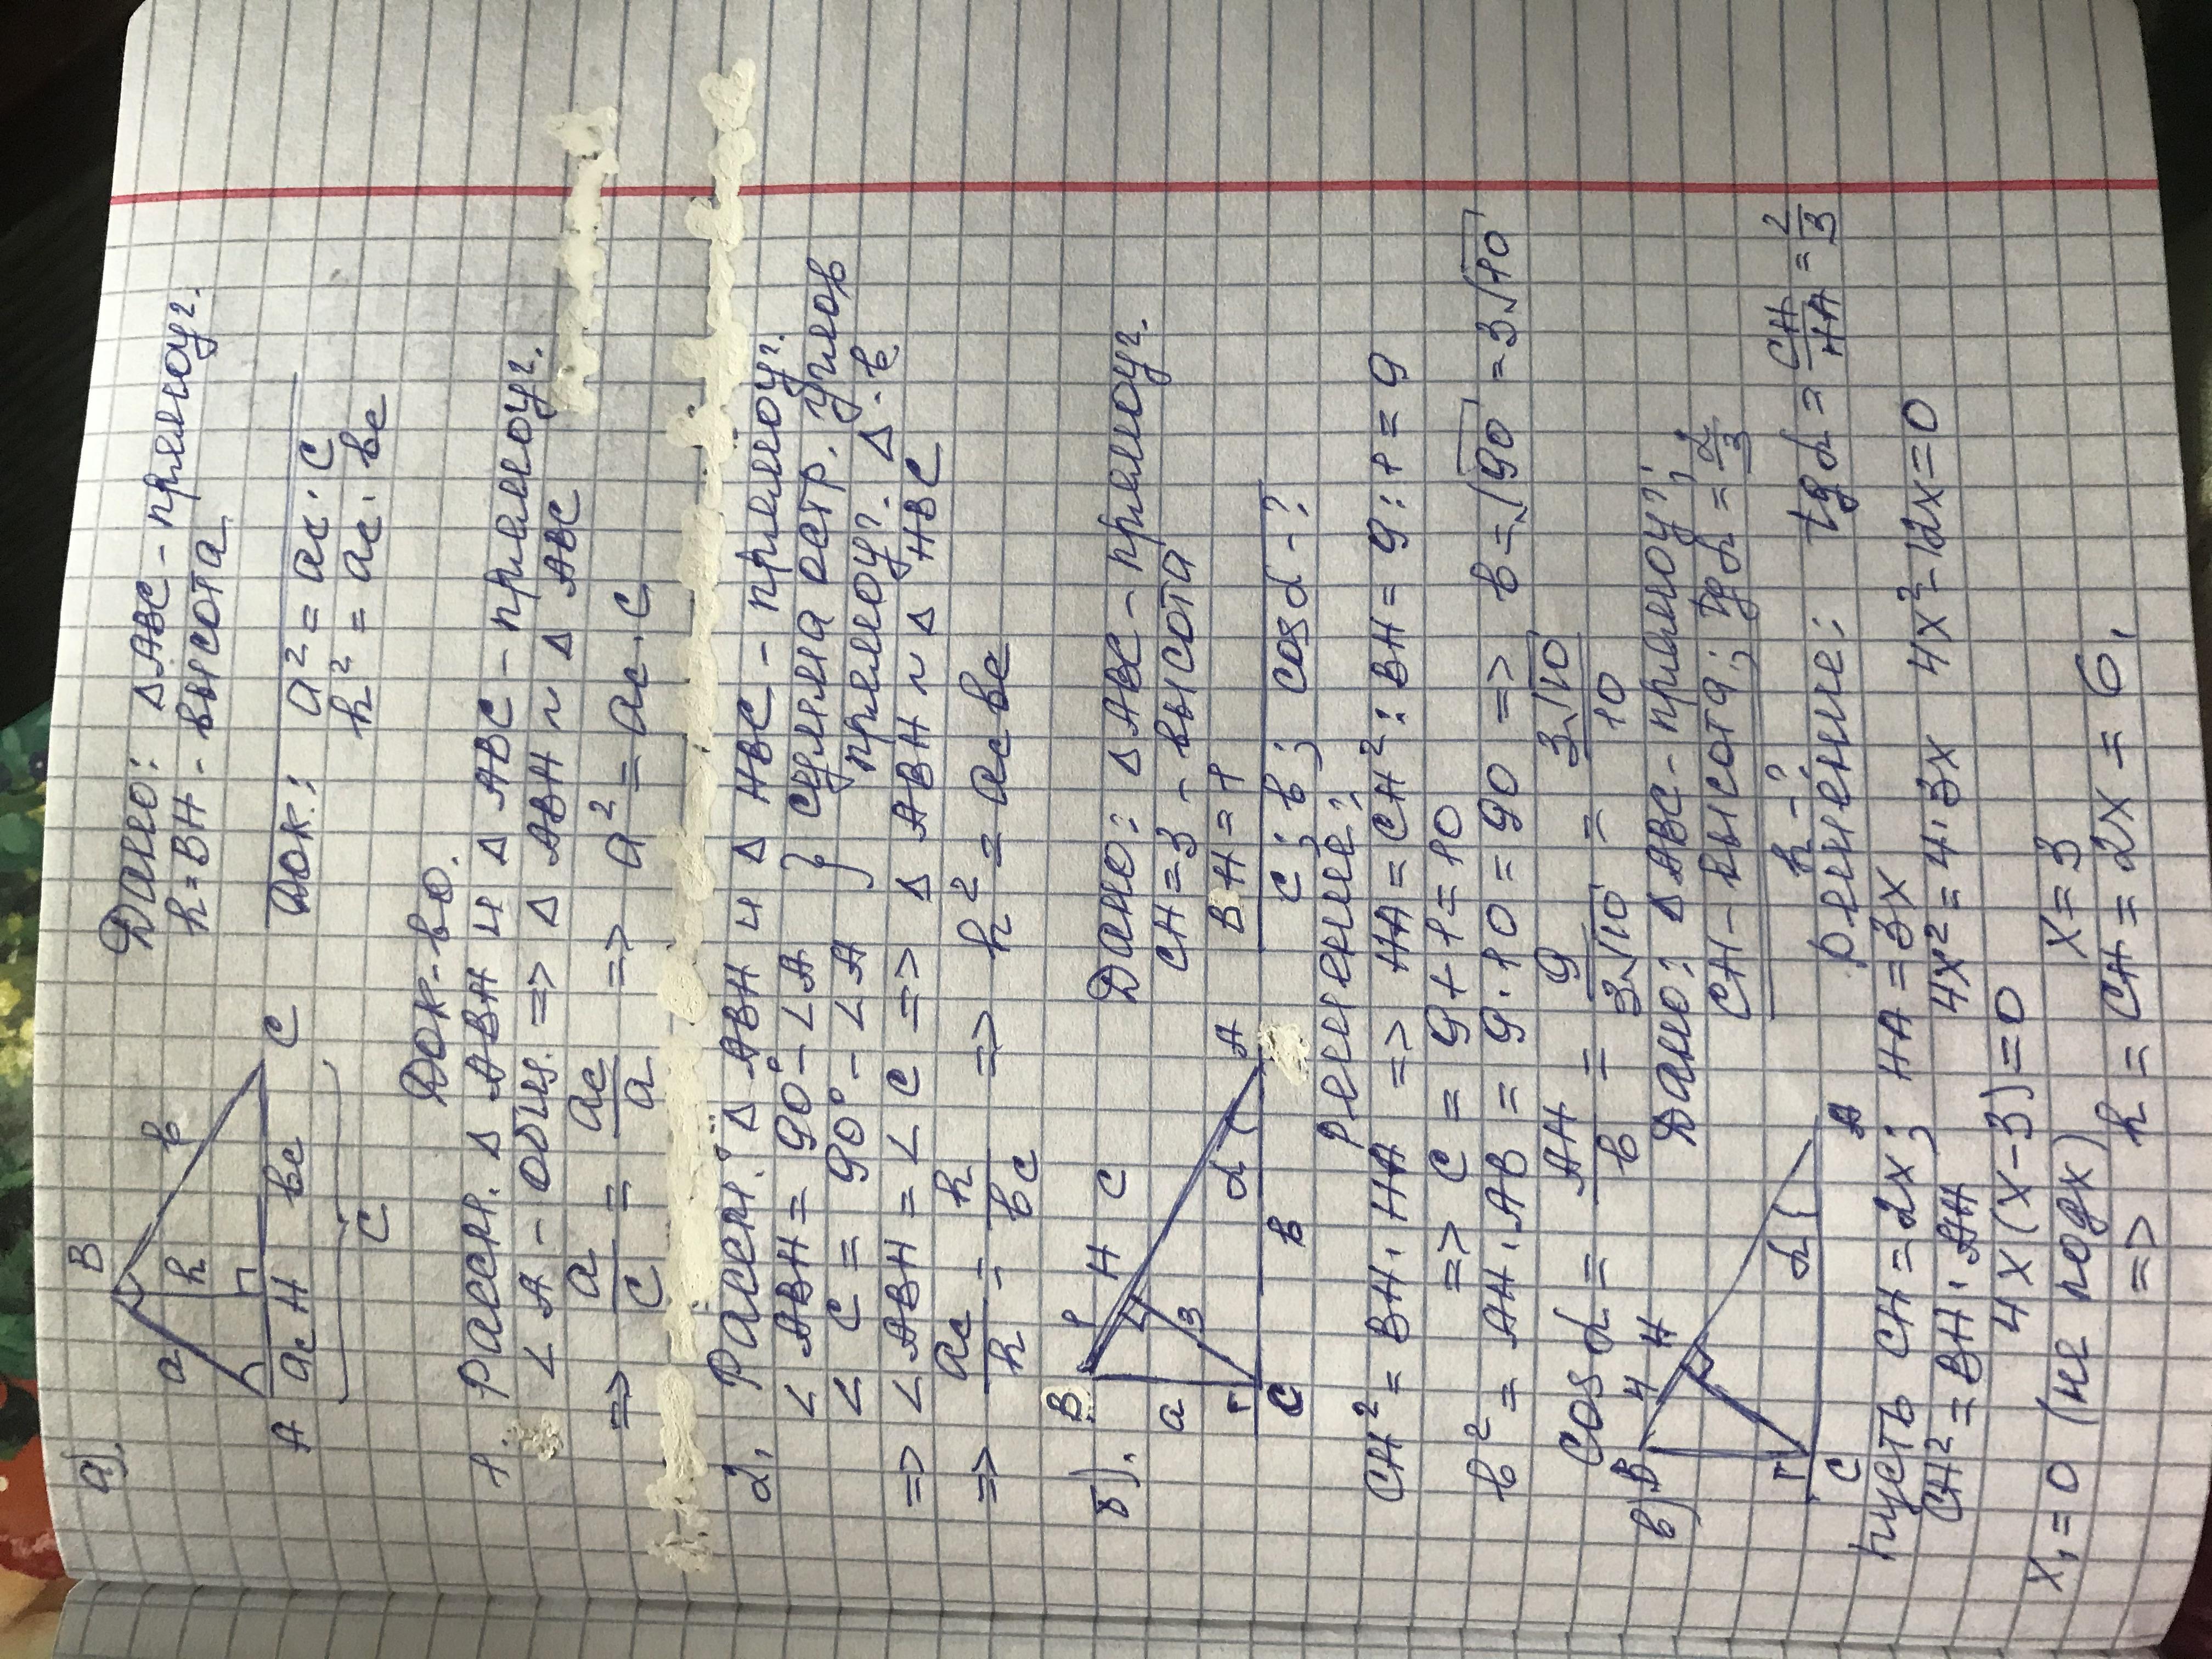 а).
B
a
h
в
A
ac
H
вc
C
c
Дано: Δ ABC - прямоуг.
h = BH - высота
Док.: a² = ac · c
h² = ac · вc
Док-во.
1. Рассм. Δ ABH и Δ ABC - прямоуг.
∠ A - общ. => Δ ABH ~ Δ ABC
=> a/c = ac/a => a² = ac · c
2. Рассм. Δ ABH и Δ HBC - прямоуг.
∠ ABH = 90° - ∠A } сумма остр. углов
∠ C = 90° - ∠A прямоуг. Δ-в
=> ∠ ABH = ∠ C => Δ ABH ~ Δ HBC
=> ac/h = h/вc => h² = ac вc
б).
B
1
H
c
a
3
α
A
C
в
Дано: Δ ABC - прямоуг.
CH = 3 - высота
BH = 1
c; в; cos α - ?
Решение:
CH² = BH · HA => HA = CH² : BH = 9 : 1 = 9
=> c = 9 + 1 = 10
в² = AH · AB = 9 · 10 = 90 => в = √90 = 3√10
cos α = AH/в = 9/3√10 = 3√10/10
в)
B
4
H
α
C
A
Дано: Δ ABC - прямоуг;
CH - высота; tg α = 2/3
h - ?
Решение: tg α = CH/HA = 2/3
пусть CH = 2x; HA = 3x
CH² = BH · AH 4x² = 4 · 3x 4x² - 12x = 0
4x (x - 3) = 0
x₁ = 0 (не подх) x = 3
=> h = CH = 2x = 6.